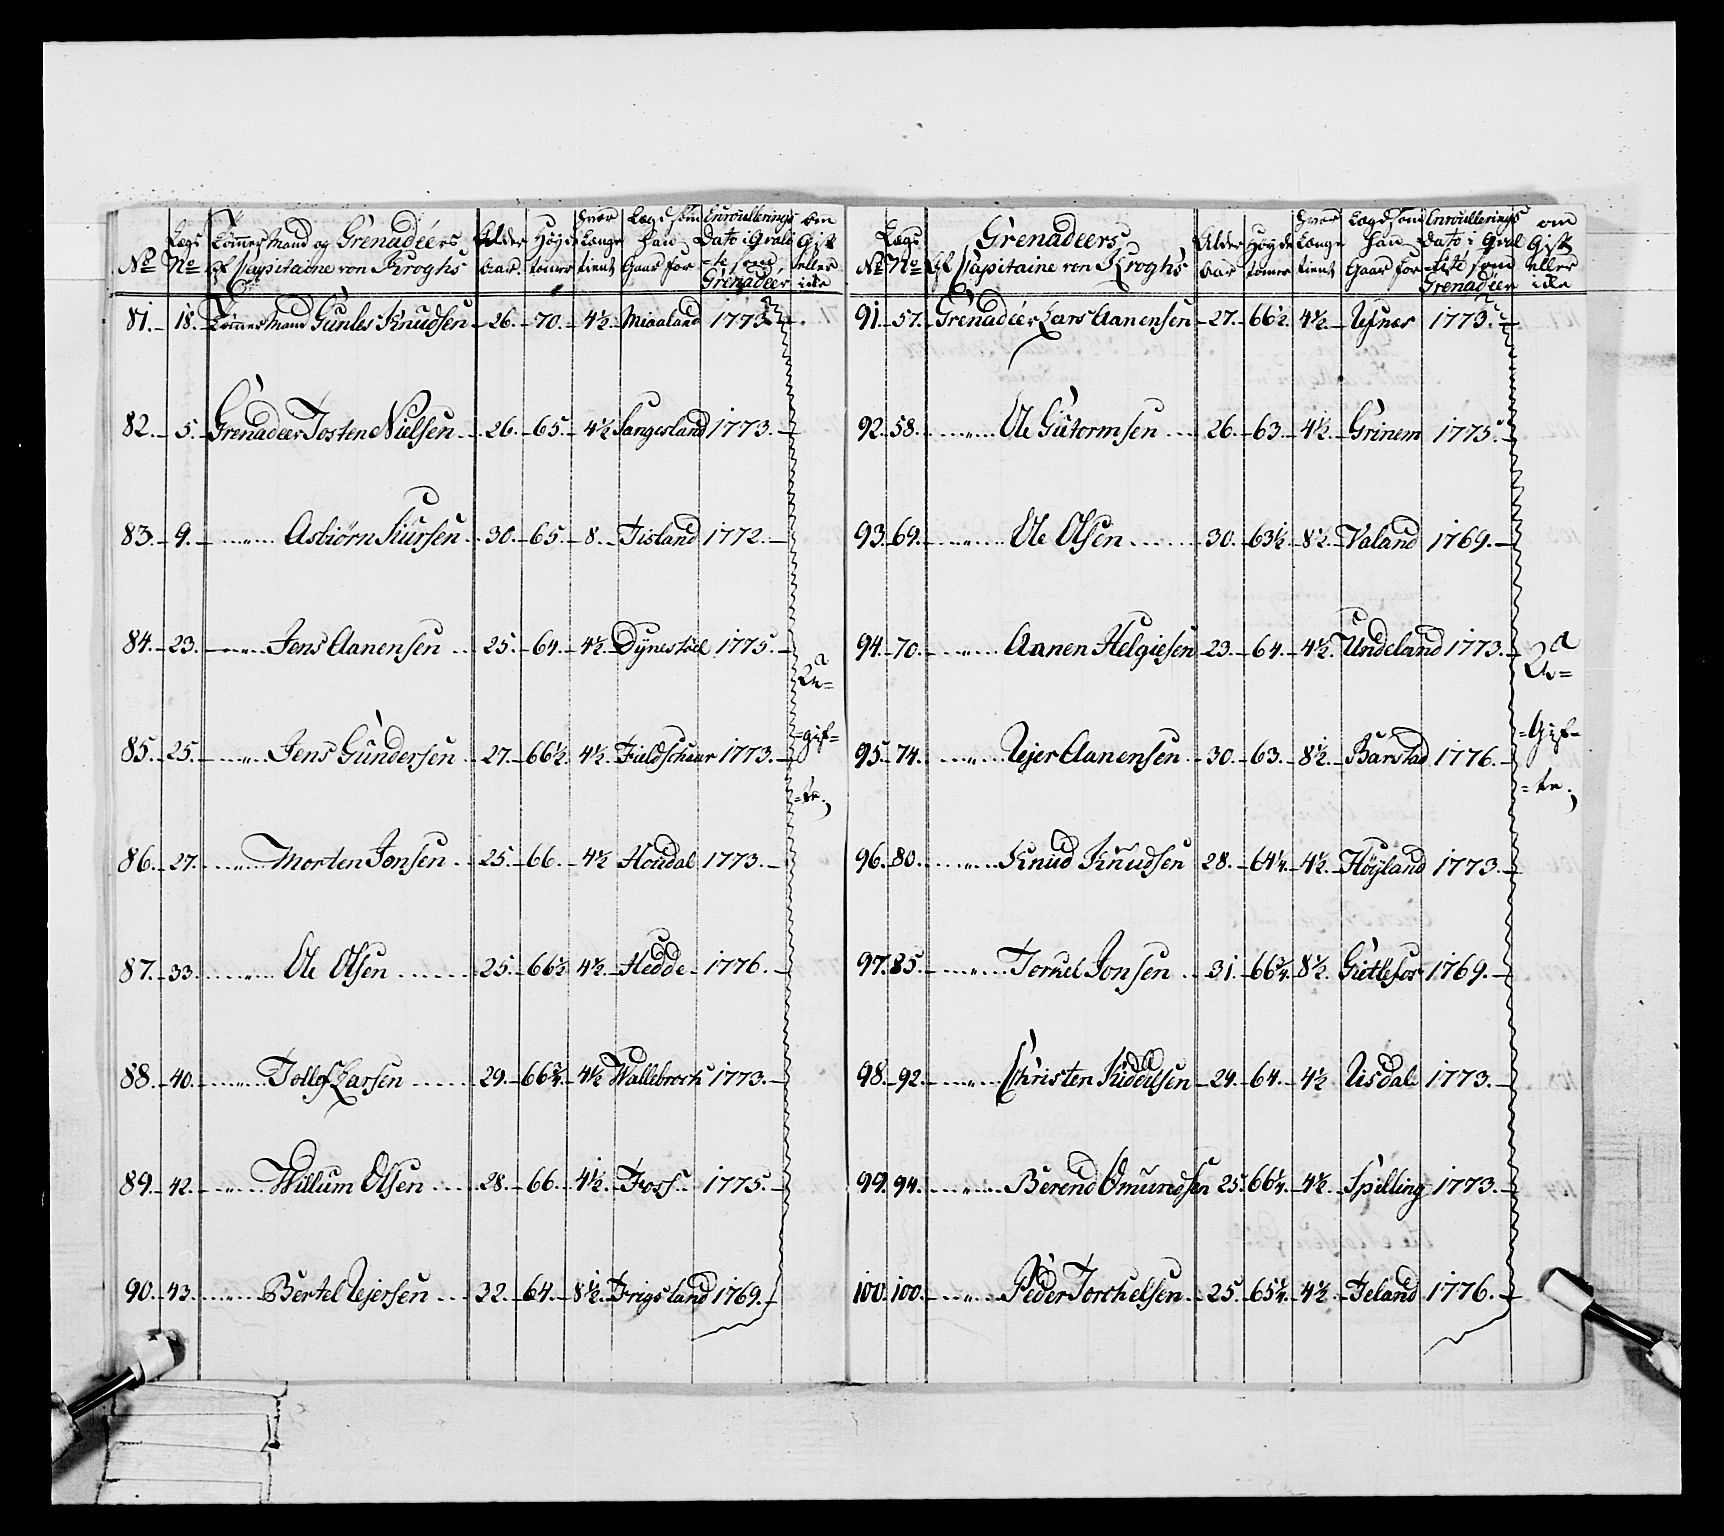 No Lægs No Tømmer Mand og Grenadeers af Capitaine von Kroghs Alder Aar Høyde tomer hvor Længe tient Lægd som han Gaar for Enroullerings Dato i Qvalite som Grenadeer om Gift eller icke
81. 18. Tømmer Mand Gunles Knudsen 26. 70. 4½ Miaaland 1773
82. 5. Grenadeer Tosten Nielsen 26. 65. 4½ Sangesland 1773.
83. 9. Asbiørn Siursen 30. 65. 8. Fisland 1772.
84. 23. Jens Aanensen 25. 64. 4½ Dynestøl 1775.
85. 25. Jens Gundersen 27. 66½ 4½ Fieldschaar 1773.
86. 27. Morten Jonsen 25. 66. 4½ Houdal 1773.
87. 33. Ole Olsen 25. 66½ 4½ Hedde 1776.
88. 40. Tollef Larsen 29. 66¾ 4½ Wallebroch 1773.
89. 42. Willum Olsen 28. 66. 4½ Foss 1775.
90. 43. Bertel Rejersen 32. 64. 8½ Frigsland 1769.
Ug=
=gif=
=te.
No Lægs No Grenadeers af Capitaine von Kroghs Alder Aar Høyde tomer hvor Længe tient Lægd som han Gaar for Enroullerings Dato i Qvalitete som Grenadeer om Gift eller icke
91. 57. Grenadeer Lars Aanensen 27. 66½ 4½ Refnes 1773.
92. 58. Ole Gutormsen 26. 63. 4½ Grinem 1775.
93. 69. Ole Olsen 30. 63½ 8½ Valand 1769.
94. 70. Aanen Helgiesen 23. 64. 4½ Undeland 1773.
95. 74. Rejer Aanensen 30. 63. 8½ Barstad 1776.
96. 80. Knud Knudsen 28. 64¼ 4½ Høyland 1773.
97. 85. Torkel Jonsen 31. 66¾ 8½ Gietlefos 1769.
98. 92. Christen Kiddelsen 24. 64. 4½ Risdal 1773.
99. 94. Berend Omundsen 25. 66¼ 4½ Spilling 1773.
100. 100. Peder Torchelsen 25. 65¼ 4½ Feland 1776.
=Gif=
=te.